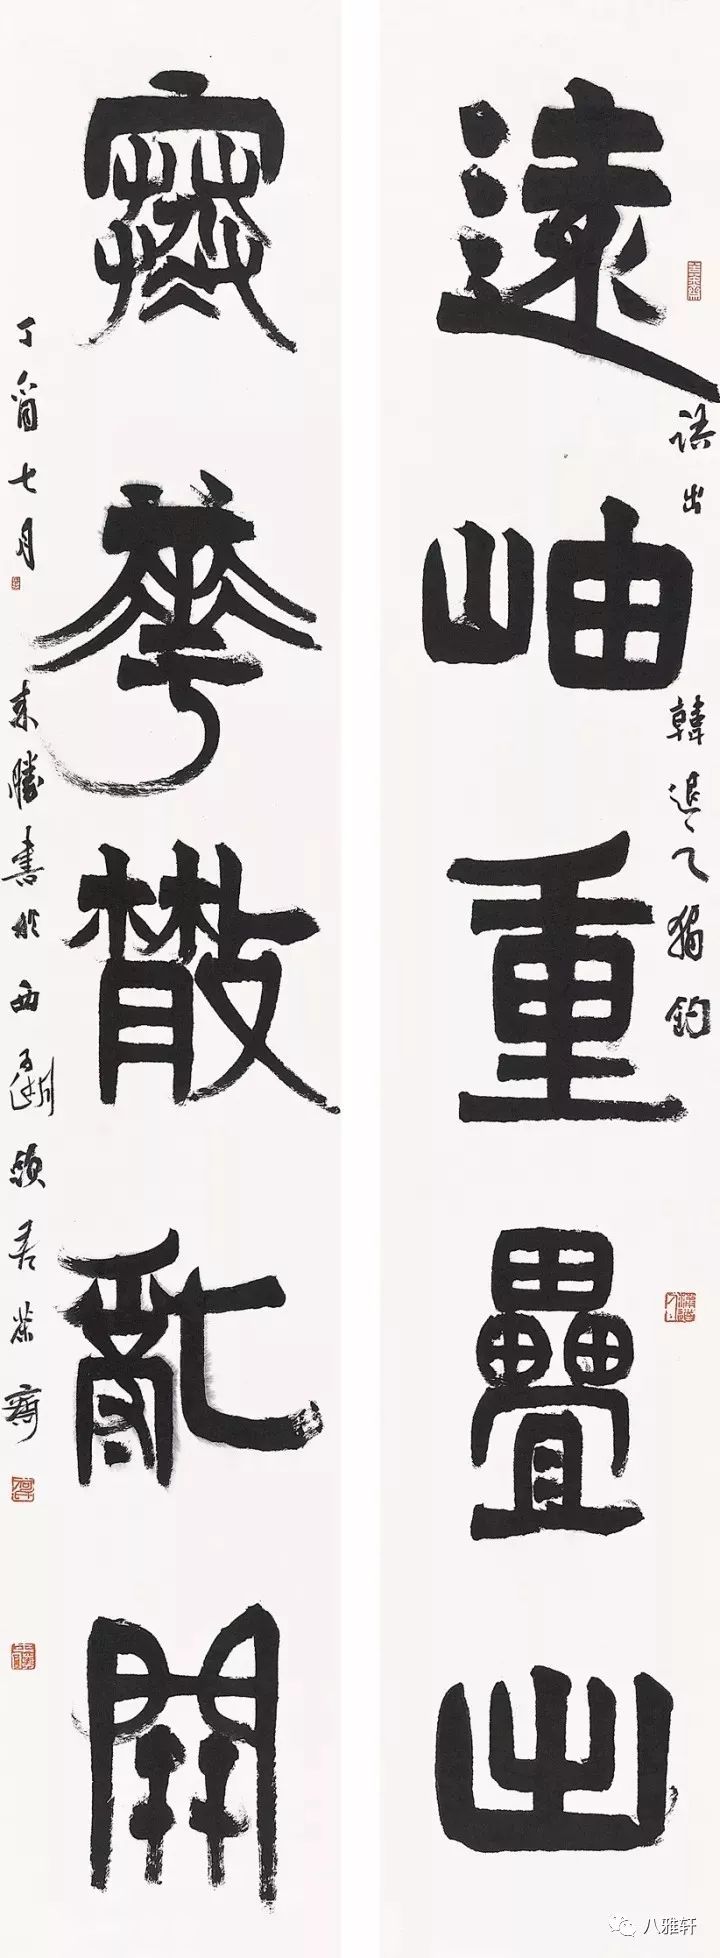 遠岫重疊出
語出韓退之獨釣
寒華散亂開
丁酉七月
来勝書於西頭茶齋
八雅轩